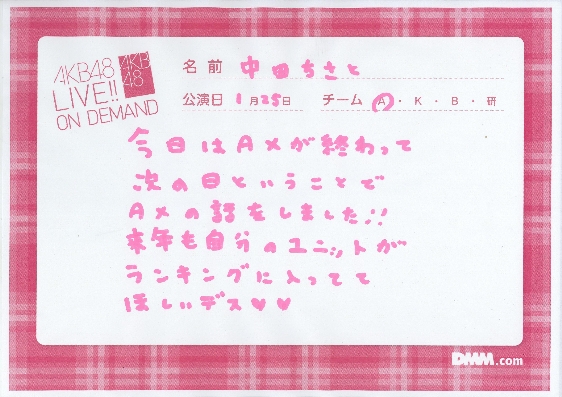 AKB48
LIVE!!
ON DEMAND
AKB
48
名前 中田ちさと
公演日 1月25日 チーム A・K・B・研
今日はAXが終わって
次の日ということで
AXの話をしました!!
来年も自分のユニットが
ランキングに入ってて
ほしいデス♥♥
DMM.com